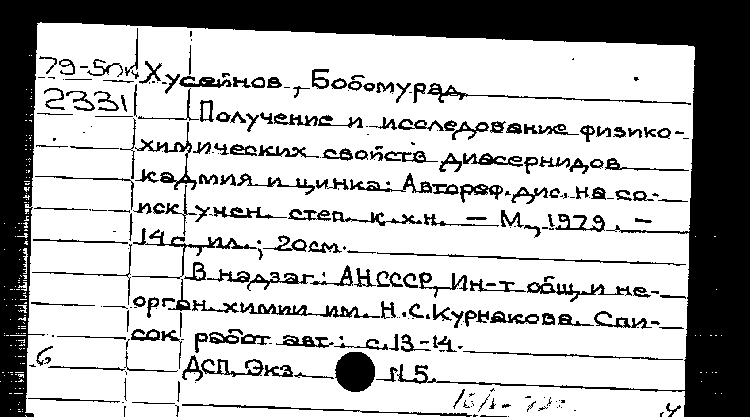 79-5ДК Хусейнов, Бобомурад.
2331 Получение и исследование физико-
химических свойств диарсенидов
кадмия и цинка: Автореф. дис. на со-
иск учен. степ. к.х.н. — М., 1979. —
14 с., ил.; 20 см.
В надзаг.: АН СССР, Ин-т общ. и не-
орган. химии им. Н.С.Курнакова. Спи-
сок работ авт.: с. 13-14.
б ДСП. Экз. N 5.